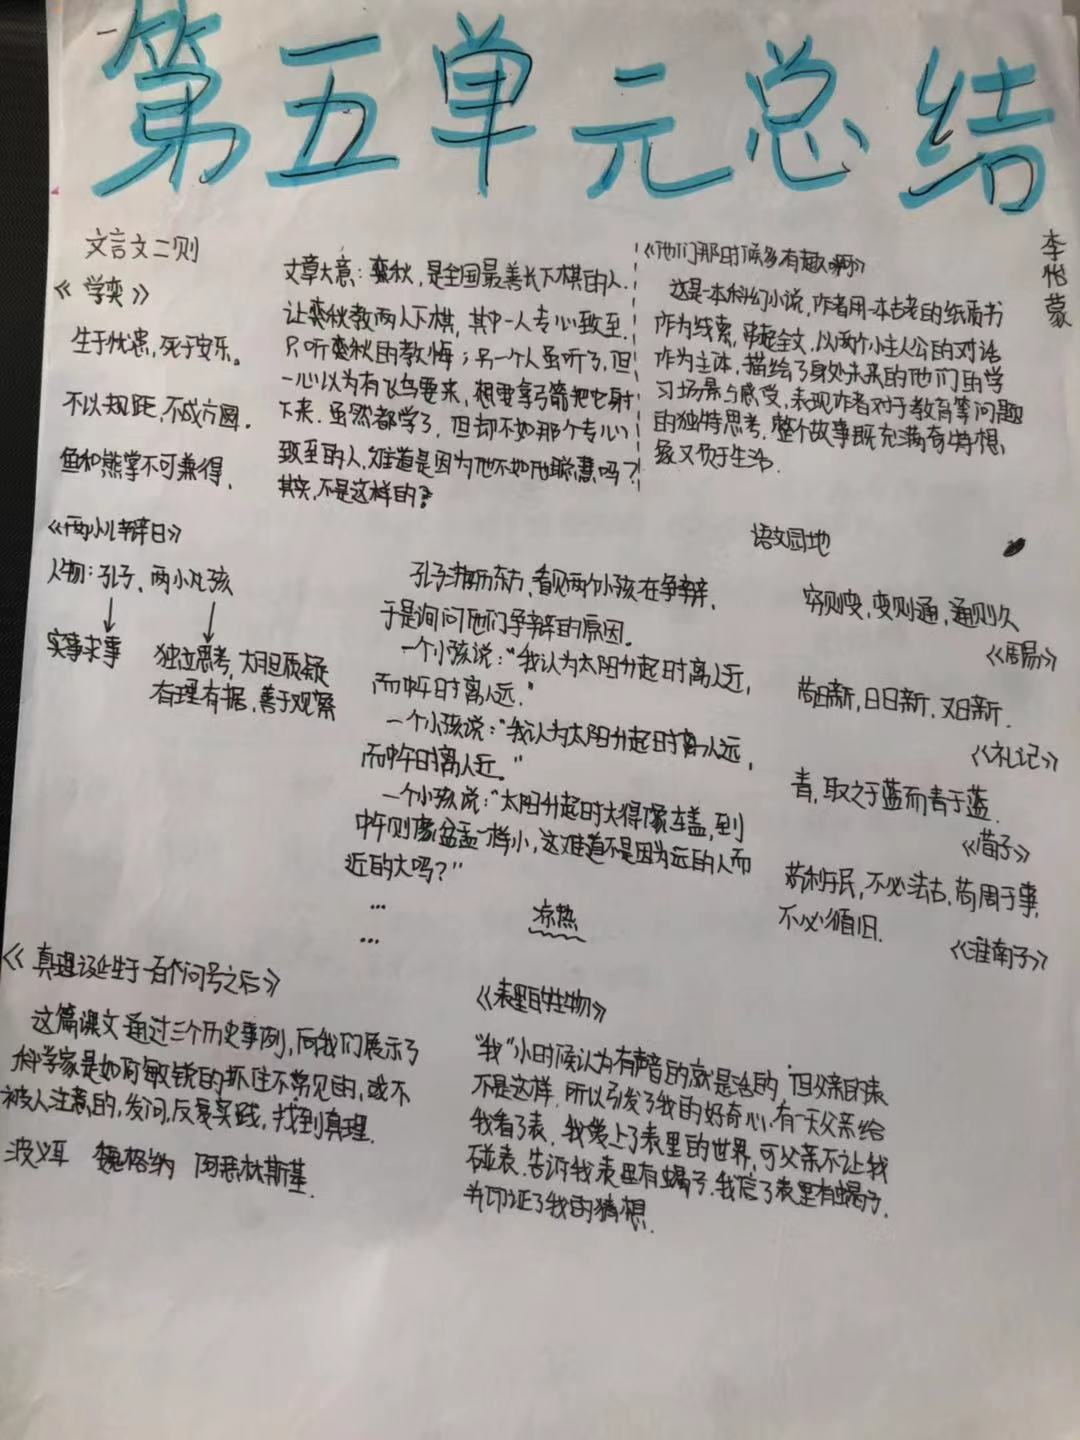 第五单元总结
李怡蒙
文言文二则
《学奕》
生于忧患,死于安乐。
不以规距,不成方圆.
鱼和熊掌不可兼得,
文章大意:奕秋,是全国最善长下棋的人.
让奕秋教两人下棋,其中一人专心致至.
只听奕秋的教悔;另一个人虽听了,但
一心以为有飞鸟要来,想要拿弓箭把它射
下来.虽然都学了,但却不如那个专心
致至的人,难道是因为他不如他聪慧吗?
其实,不是这样的?
《他们那时候多有趣啊》
这是一本科幻小说,作者用一本古老的纸质书
作为线索,串起全文,以两个小主人公的对话
作为主体,描绘了身处未来的他们的学
习场景与感受,表现作者对于教育等问题
的独特思考.整个故事既充满奇特想
象又负于生活.
《两小儿辩日》
人物:孔子、两小儿孩
实事求事
独立思考,大胆质疑
有理有据,善于观察
孔子游历东方,看见两个小孩在争辩,
于是询问他们争辩的原因。
一个小孩说:“我认为太阳升起时离人近,
而中午时离人远.”
一个小孩说:“我认为太阳升起时离人远,
而中午时离人近。”
一个小孩说:“太阳升起时大得像车盖,到
中午则像盆盂一样小,这难道不是因为远的人而
近的大吗?”
...
... 凉热
语文园地
穷则变,变则通,通则久
《周易》
苟日新,日日新,又日新.
《礼记》
青,取之于蓝而青于蓝.
《荀子》
苟利于民,不必法古,苟周于事,
不必循旧.
《淮南子》
《真理诞生于一百个问号之后》
这篇课文通过三个历史事例,向我们展示了
科学家是如何敏锐的抓住不常见的,或不
被人注意的,发问,反复实践,找到真理.
波义耳 魏格纳 阿瑟林斯基.
《表里的生物》
“我”小时候认为有声音的就是活的,但父亲的表
不是这样.所以引发了我的好奇心,有一天父亲给
我看了表.我爱上了表里的世界,可父亲不让我
碰表.告诉我表里有蝎子.我信了表里有蝎子.
并印证了我的猜想.